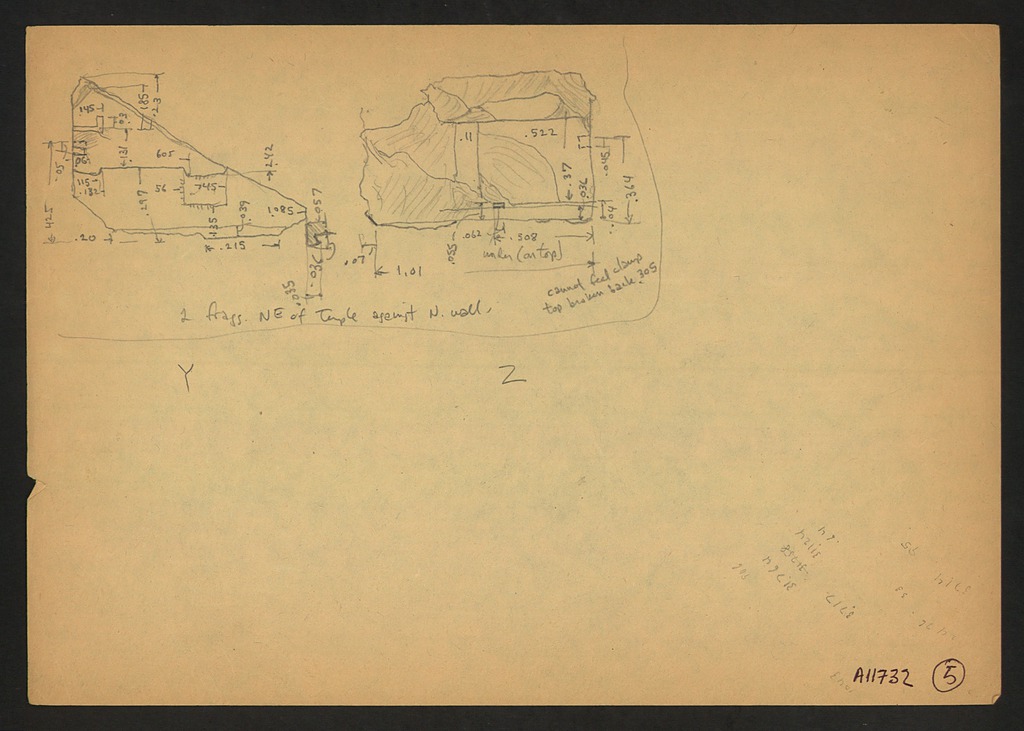 .145
.03
.185
.23
.05
.131
605
.242
.115
.132
.297
56
.745
.425
.20
.135
.039
.215
.085
.057
.036
.035
.11
.522
.37
.045
.364
.036
.04
.062
.508
.055
.07
1.01
under (on top)
cannot feel clamp
top broken back .305
2 frags. NE of Temple against N. wall.
Y Z
A11732 5